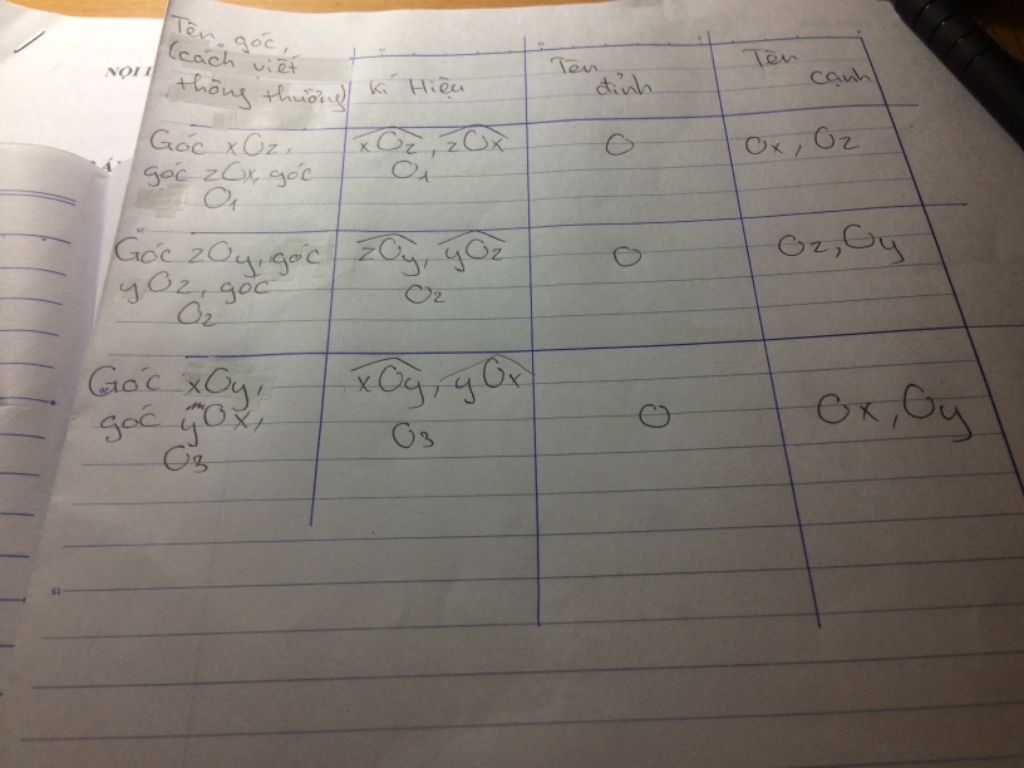 NỘI
Tên góc,
(cách viết
thông thường)
Kí Hiệu
Tên
đỉnh
Tên
cạnh
Góc xOz,
góc zOx, góc
O1
xOz, zOx
O1
O
Ox, Oz
Góc zOy, góc
yOz, góc
O2
zOy, yOz
O2
O
Oz, Oy
Góc xOy,
góc yOx,
O3
xOy, yOx
O3
O
Ox, Oy
15